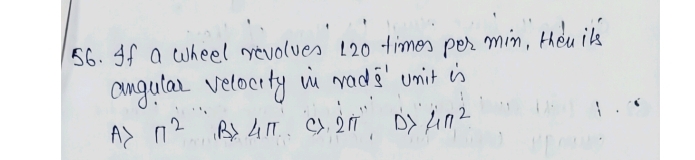 56. If a wheel revolves 120 times per min, then its
angular velocity in rad s⁻¹ unit is
A> π² B> 4π C> 2π D> 4π²